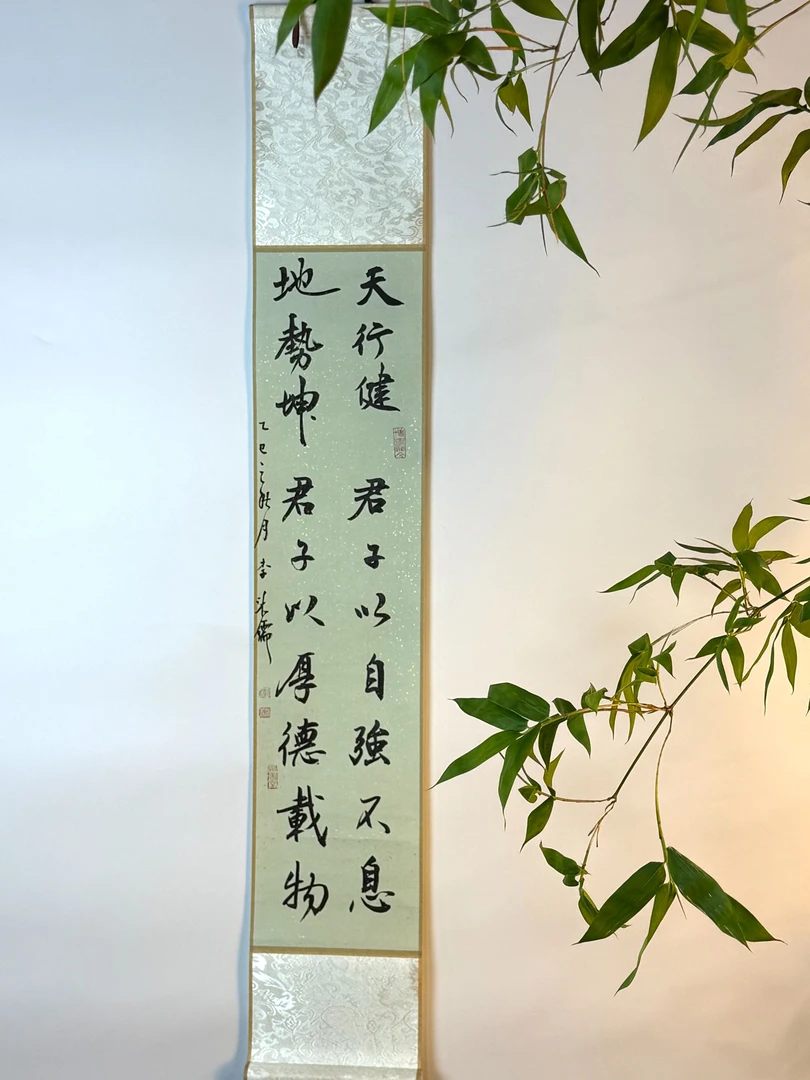 天行健 君子以自強不息
地勢坤 君子以厚德載物
乙巳之秋月 李